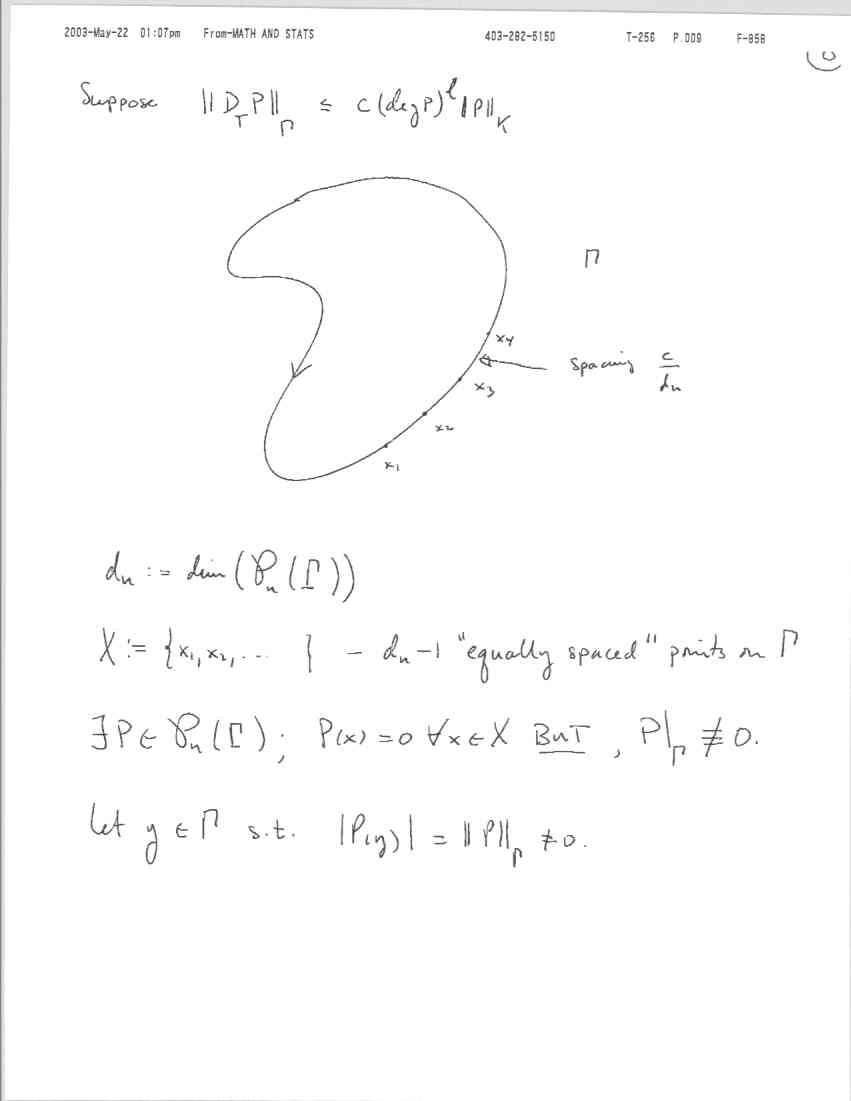 2003-May-22 01:07pm From-MATH AND STATS 403-282-5150 T-256 P.009 F-858
Suppose ||D_T P||_Γ ≤ c(deg P)^l ||P||_K
Γ
x4
spacing c/dn
x3
x2
x1
dn := dim(𝒫n(Γ))
X := {x1, x2, ... } - dn-1 "equally spaced" points on Γ
∃P∈ 𝒫n(Γ); P(x) = 0 ∀x∈X BUT, P|_Γ ≢ 0.
Let y ∈ Γ s.t. |P(y)| = ||P||_Γ ≠ 0.